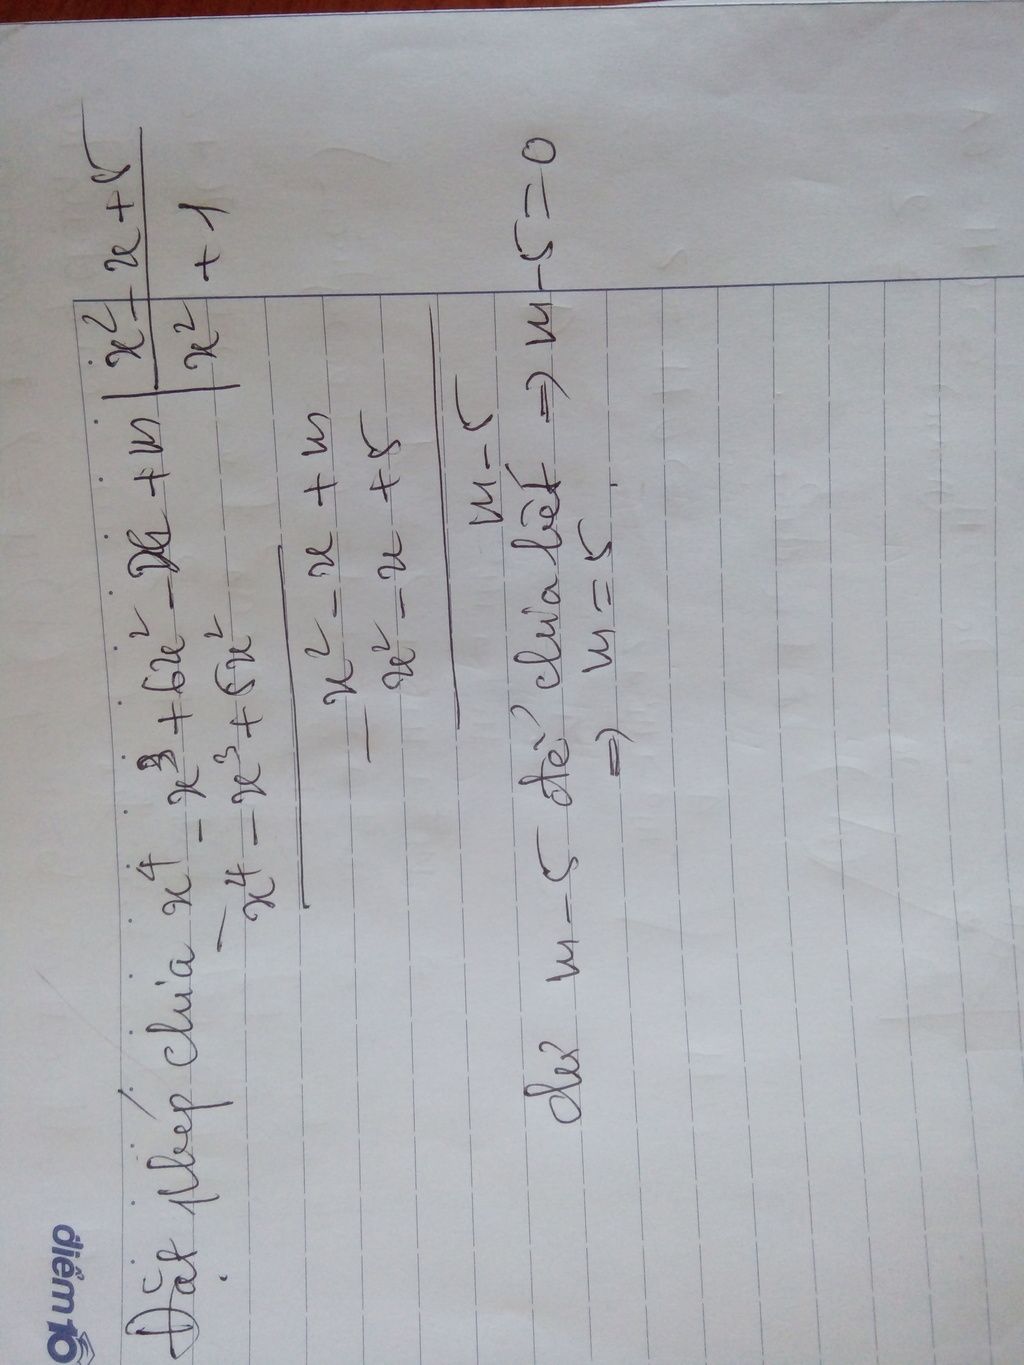 điểm 10
Đặt phép chia x⁴ - x³ + 6x² - x + m | x² - x + 5
x⁴ - x³ + 5x² | x² + 1
x² - x + m
x² - x + 5
m - 5
dư m - 5 để chia hết ⇒ m - 5 = 0
⇒ m = 5